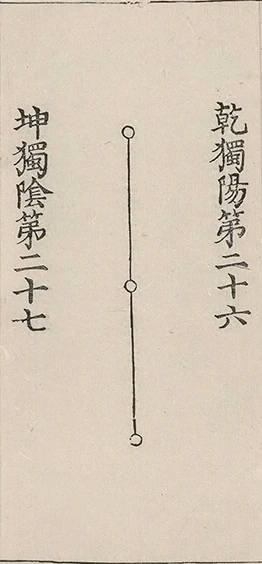 乾獨陽第二十六
坤獨陰第二十七